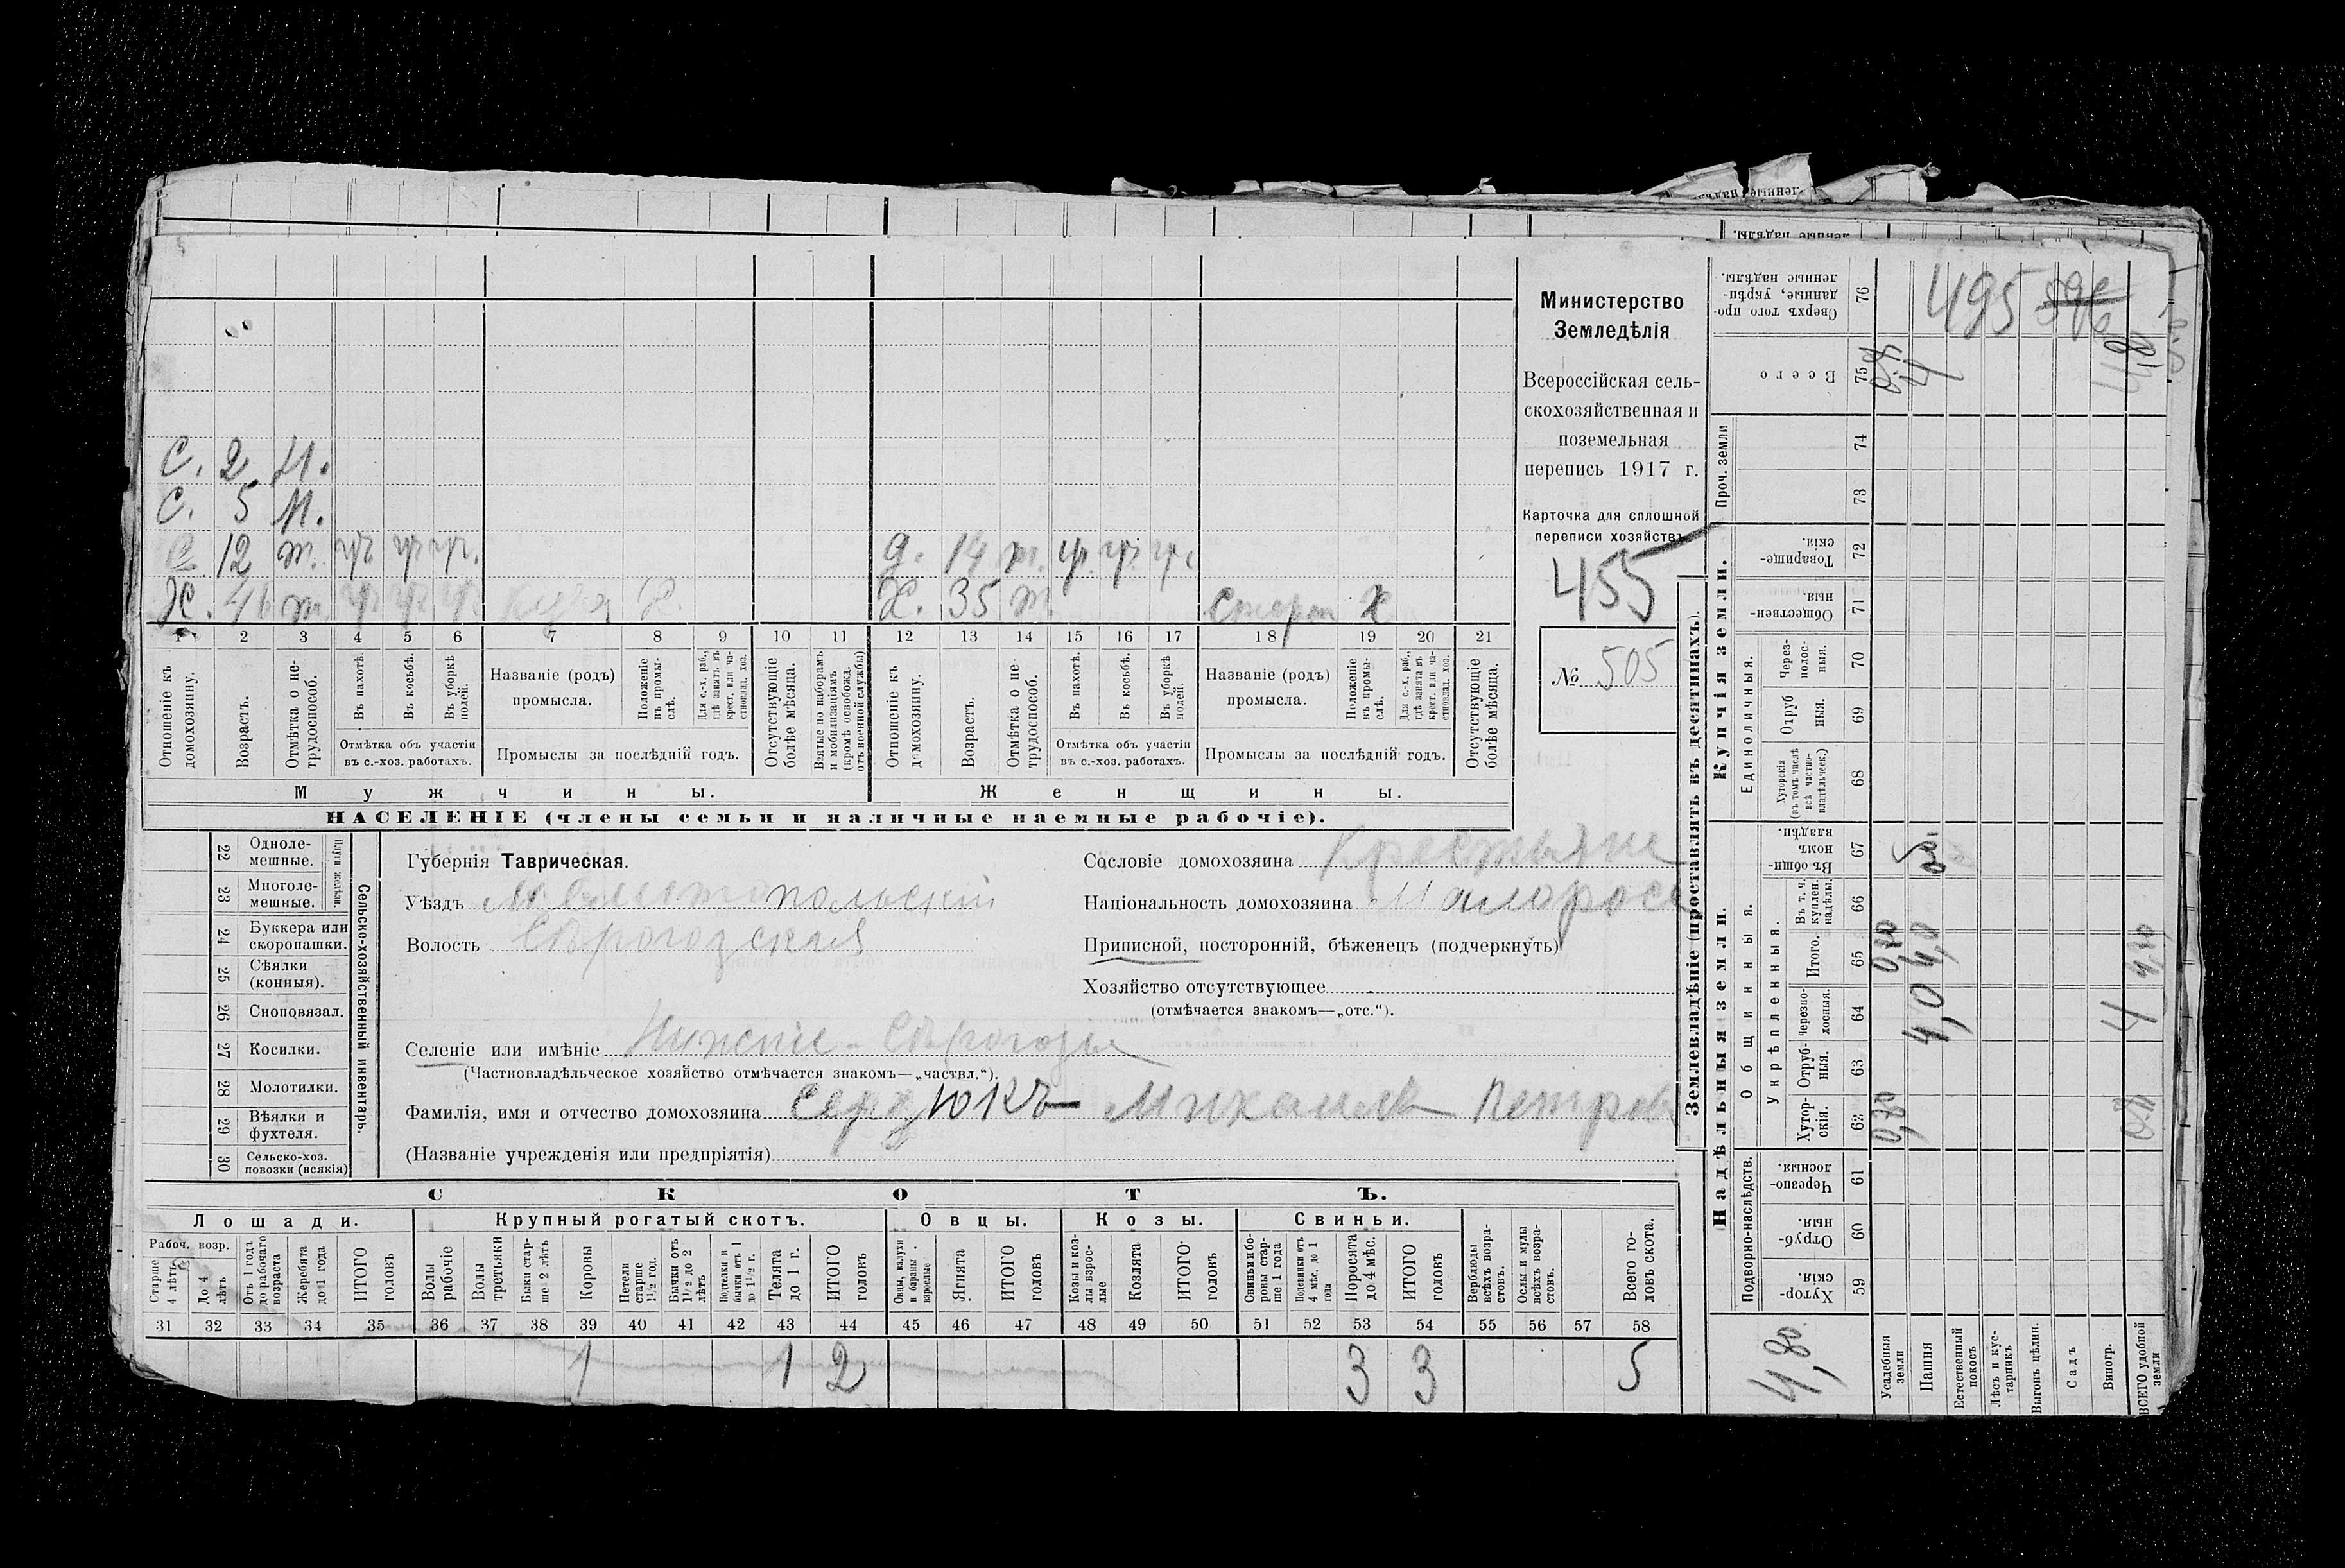 Министерство
Земледѣлія
Всероссійская сель-
скохозяйственная и
поземельная
перепись 1917 г.
Карточка для сплошной
переписи хозяйствъ
455
№ 505
С. 2 Н.
С. 5 Н.
С. 12 т. гр. гр. гр. д. 14 т. гр. гр. гр.
Х. т. гр. гр. гр. Х. Х. 35 т. Х
1 2 3 4 5 6 7 8 9 10 11 12 13 14 15 16 17 18 19 20 21
Отношеніе къ домохозяину.
Возрастъ.
Отмѣтка о не-трудоспособ.
Въ пахотѣ.
Въ косьбѣ.
Въ уборкѣ полей.
Отмѣтка объ участіи въ с.-хоз. работахъ.
Названіе (родъ) промысла.
Положеніе въ промы-слѣ.
Для с.-х. раб., гдѣ занятъ въ крест. или ча-стновлад. хоз.
Промыслы за послѣдній годъ.
Отсутствующіе болѣе мѣсяца.
Взятые по наборамъ и мобилизаціямъ (кромѣ освобожд. отъ военной службы)
Отношеніе къ домохозяину.
Возрастъ.
Отмѣтка о не-трудоспособ.
Въ пахотѣ.
Въ косьбѣ.
Въ уборкѣ полей.
Отмѣтка объ участіи въ с.-хоз. работахъ.
Названіе (родъ) промысла.
Положеніе въ промы-слѣ.
Для с.-х. раб., гдѣ занята въ крест. или ча-стновлад. хоз.
Промыслы за послѣдній годъ.
Отсутствующіе болѣе мѣсяца.
Мужчины. Женщины.
НАСЕЛЕНІЕ (члены семьи и наличные наемные рабочіе).
22 Одноле-мешные.
23 Многоле-мешные.
Плуги желѣзн.
24 Буккера или скоропашки.
25 Сѣялки (конныя).
26 Сноповязал.
27 Косилки.
28 Молотилки.
29 Вѣялки и фухтеля.
30 Сельско-хоз. повозки (всякія)
Сельско-хозяйственный инвентарь.
Губернія Таврическая.
Уѣздъ Мелитопольскій
Волость Сѣрогозская
Селеніе или имѣніе Нижніе-Сѣрогозы
(Частновладѣльческое хозяйство отмѣчается знакомъ—„частвл.“).
Фамилія, имя и отчество домохозяина Сердюкъ Михаилъ Петров
(Названіе учрежденія или предпріятія)
Сословіе домохозяина Крестьяне
Національность домохозяина Малоросс
Приписной, посторонній, бѣженецъ (подчеркнуть)
Хозяйство отсутствующее
(отмѣчается знакомъ—„отс.“).
СКОТЪ.
Лошади. Крупный рогатый скотъ. Овцы. Козы. Свиньи.
Рабоч. возр.
Старше 4 лѣтъ
До 4 лѣтъ
Отъ 1 года до рабочаго возраста
Жеребята до 1 года
ИТОГО головъ
Волы рабочіе
Волы третьяки
Быки стар-ше 2 лѣтъ
Коровы
Нетели старше 1½ год.
Бычки отъ 1½ до 2 лѣтъ
Подтелки и бычки отъ 1 до 1½ г.
Телята до 1 г.
ИТОГО головъ
Овцы, валухи и бараны взрослые
Ягнята
ИТОГО головъ
Козы и коз-лы взрос-лые
Козлята
ИТОГО головъ
Свиньи и бо-ровы стар-ше 1 года
Подсвинки отъ 4 мѣс. до 1 года
Поросята до 4 мѣс.
ИТОГО головъ
Верблюды всѣхъ возра-стовъ.
Ослы и мулы всѣхъ возра-стовъ.
Всего го-ловъ скота.
31 32 33 34 35 36 37 38 39 40 41 42 43 44 45 46 47 48 49 50 51 52 53 54 55 56 57 58
1 1 2 3 3 5
Землевладѣніе (проставлять въ десятинахъ).
Надѣльныя земли. Купчія земли. Проч. земли
Подворно-наслѣдств.
Общинныя.
Укрѣпленныя.
Единоличныя.
59 Хутор-скія.
60 Отруб-ныя.
61 Черезпо-лосныя.
62 Хутор-скія.
63 Отруб-ныя.
64 Черезпо-лосныя.
65 Итого.
66 Въ т. ч. куплен. надѣлы.
67 Въ общи-номъ владѣн.
68 Хуторскія (въ томъ числѣ всѣ частно-владѣльческ.)
69 Отруб ныя.
70 Через-полос-ныя.
71 Обществен-ныя.
72 Товарище-скія.
73
74
75 Всего
76 Сверхъ того про-данные, укрѣп-ленные надѣлы.
495
4,80
Усадебныя земли 0,80
Пашня 4,0 4,0
Естественный покосъ
Лѣсъ и кус-тарникъ
Выгонъ цѣлин.
Садъ
Виногр.
ВСЕГО удобной земли 0,8 4 4,80 4,8